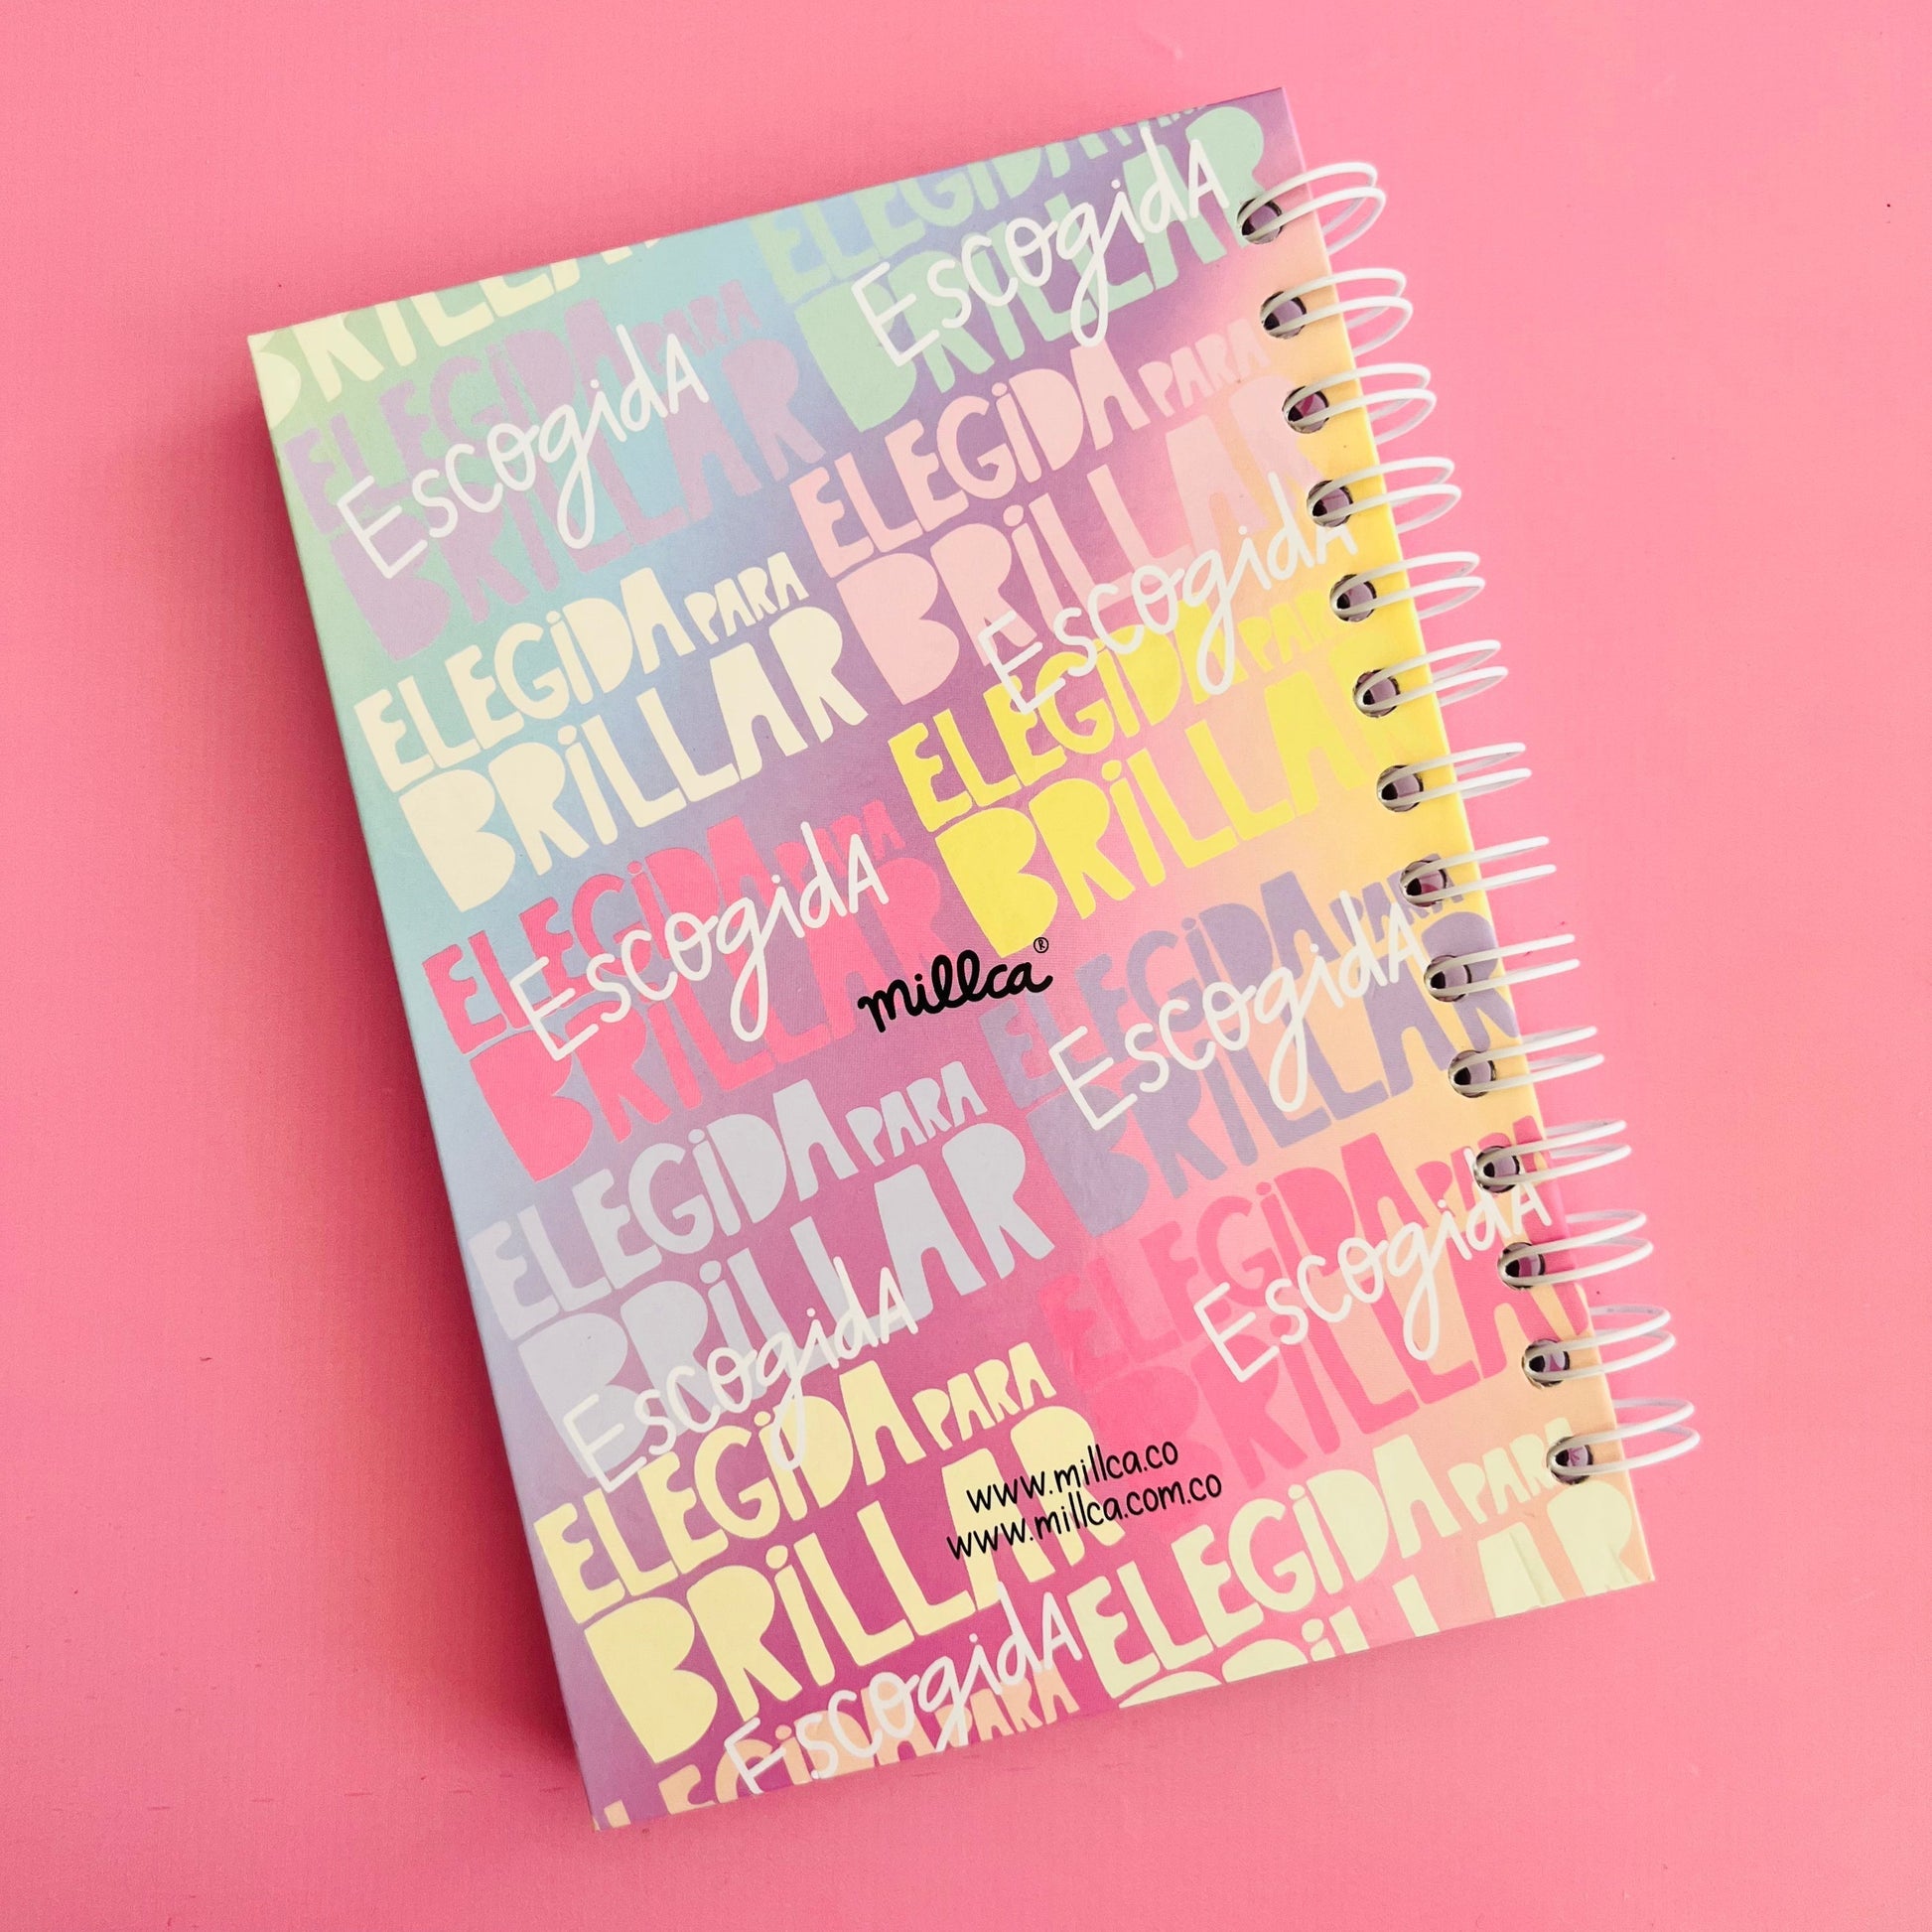 BRiLLAR
ELEGiDA PARA
BRiLLAR
EscogidA
ELEGiDA PARA
BRiLLAR
EscogidA
ELEGiDA PARA
BRiLLAR
ELEGiDA PARA
BRiLLAR
EscogidA
ELEGiDA PARA
BRiLLAR
ELEGiDA PARA
BRiLLAR
EscogidA
millca®
ELEGiDA PARA
BRiLLAR
EscogidA
ELEGiDA PARA
BRiLLAR
EscogidA
ELEGiDA PARA
BRiLLAR
EscogidA
ELEGiDA PARA
BRiLLAR
www.millca.co
www.millca.com.co
ELEGiDA PARA
BRiLLAR
EscogidA
ELEGiDA PARA